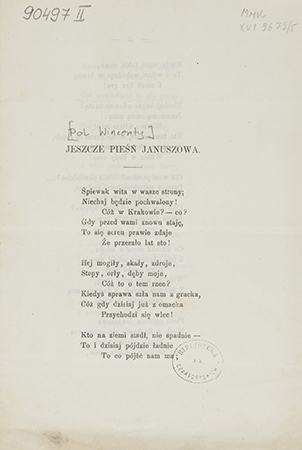 90497 II
MMK
XVI 9673/5
[Pol Wincenty]
JESZCZE PIEŚŃ JANUSZOWA.
Śpiewak wita w wasze strony;
Niechaj będzie pochwalony!
Cóż w Krakowie? — co?
Gdy przed wami znowu staję,
To się sercu prawie zdaje
Że przeszło lat sto!
Hej mogiły, skały, zdroje,
Stepy, orły, dęby moje,
Cóż to o tem rzec?
Kiedyś sprawa szła nam z gracka,
Cóż gdy dzisiaj już z omacka
Przychodzi się wlec!
Kto na ziemi siadł, nie spadnie —
To i dzisiaj pójdzie ładnie
To co pójść nam ma:
BIBLIOTEKA